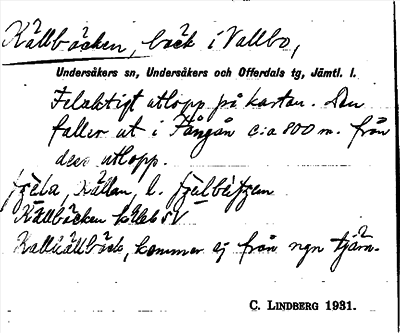 Källbäcken, bäck i Vallbo,
Undersåkers sn, Undersåkers och Offerdals tg, Jämtl. l.
Felaktigt utlopp på kartan. Den
faller ut i Fångån c:a 800 m. från
dess utlopp.
Källan, l.
Källbäcken
Kallkällbäck, kommer ej från ngn tjärn.
C. LINDBERG 1931.